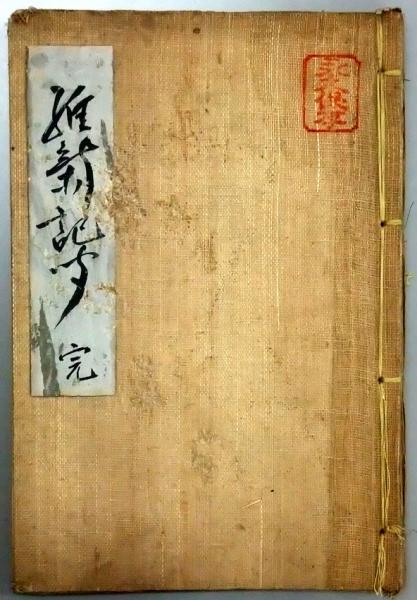 維新記聞 完